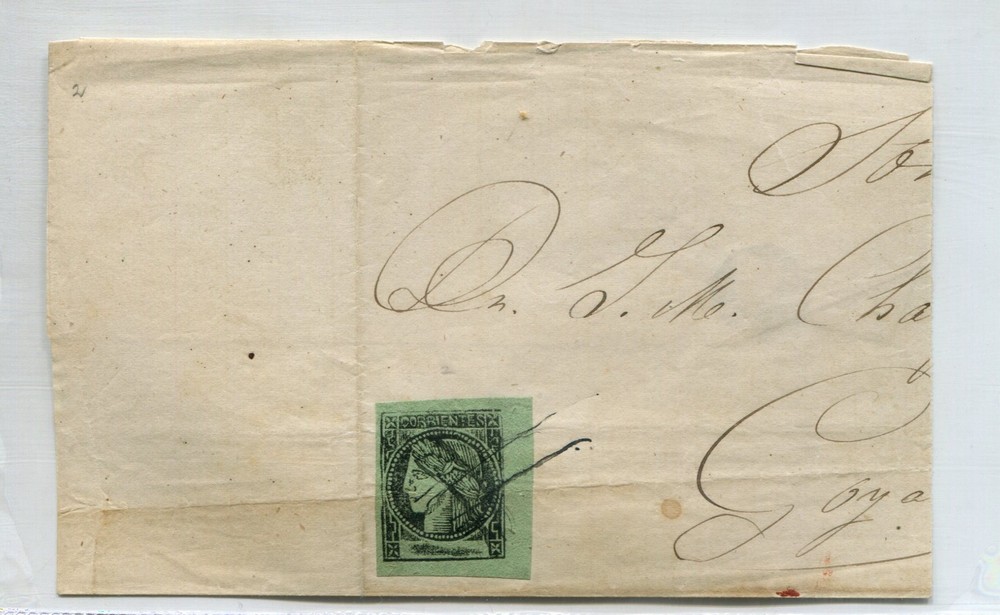 2
Sor
Dn. J. M. Cha
Goya.
CORRIENTES